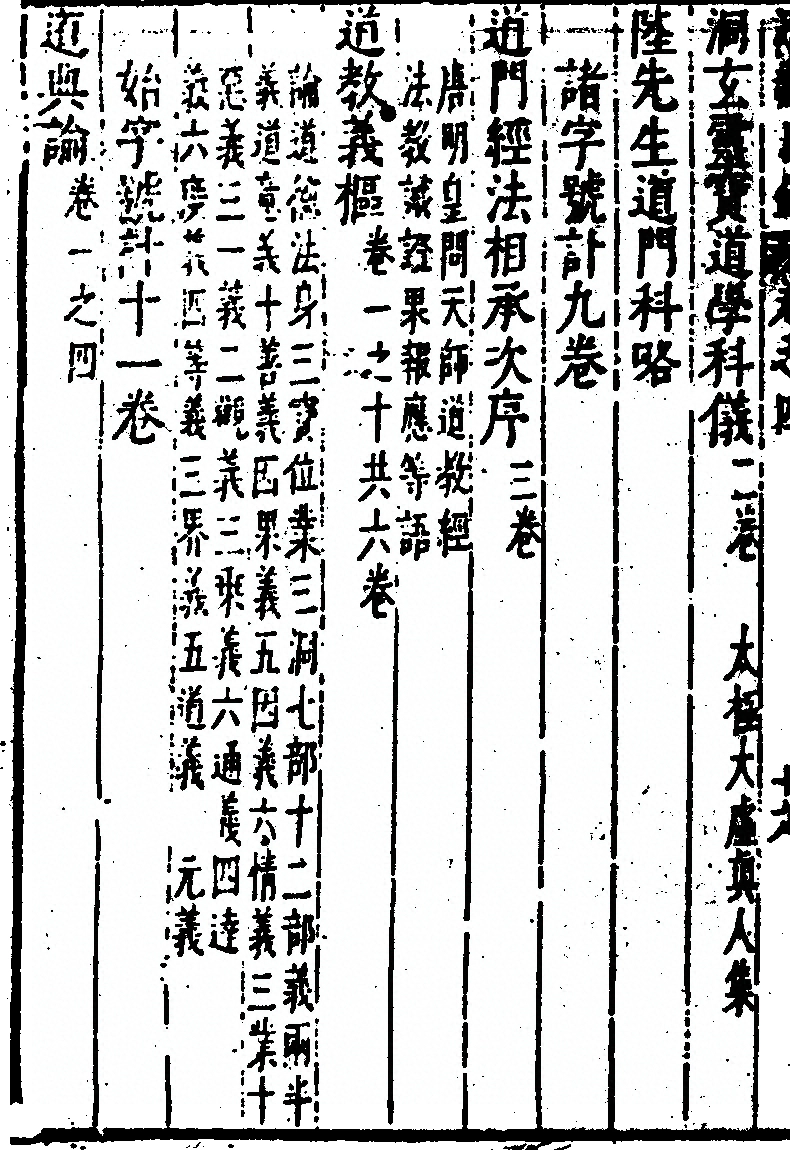 洞玄靈寶道學科儀二卷　太極大虛真人集
陸先生道門科略
諸字號計九卷
道門經法相承次序三卷
唐明皇問天師道教經
法教誡證果報應等語
道教義樞卷一之十共六卷
論道德法身三寶位業三洞七部十二部義兩半
義道意義十善義因果義五因義六情義三業十
惡義三一義二觀義三乘義六通義四達
義六度義四等義三界義五道義　元義
始字號計十一卷
道典論卷一之四